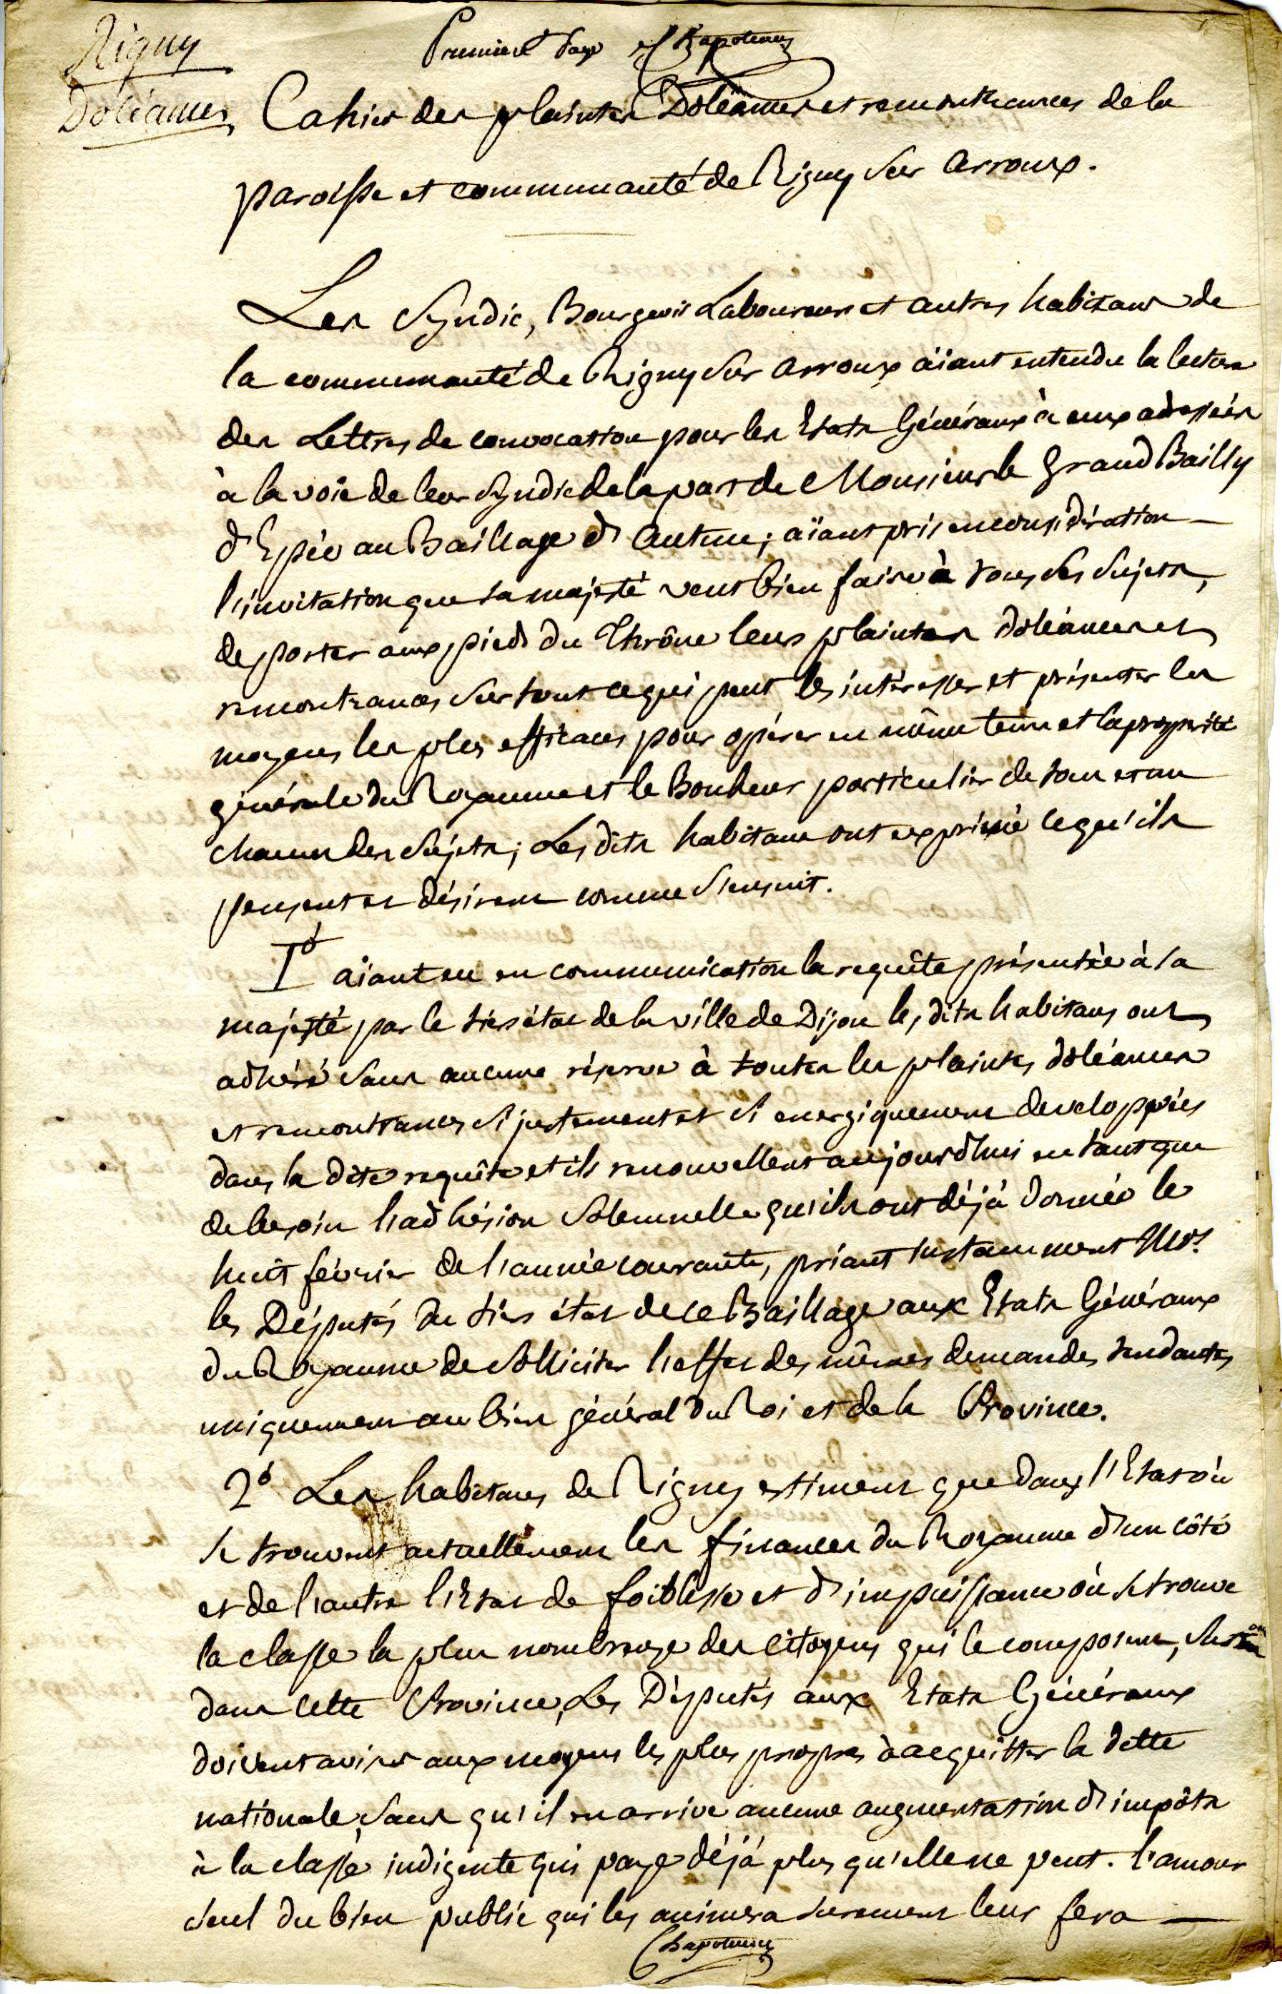 Rigny
Doléances
Premiere page
Cahier des plaintes Doléances et remonthrances de la
paroisse et communauté de Rigny sur arroux.
Les Syndic, Bourgeois Laboureurs et autres habitans de
la communauté de Rigny sur arroux aïant entendu la lecture
des Lettres de convocation pour les Etats Généraux à eux adressées
à la voie de leur Syndic de la part de Monsieur le Grand Bailly
d'Epée au Baillage d'autun; aïant pris en considération
l'invitation que sa majesté veut bien faire à tous ses Sujets,
de porter aux pieds du Thrône leurs plaintes doléances et
remontrances sur tout ce qui peut les intéresser et présenter les
moyens les plus efficaces pour opérer en même tems et la prospérité
générale du Royaume et le Bonheur particulier de tous et un
chacun des Sujets; Les dits habitans ont exprimé ce qu'ils
pensent et désirent comme s'ensuit.
1° aïant eu en communication la requête présentée à sa
majesté par le tiers état de la ville de Dijon les dits habitans ont
adhéré sans aucune réserve à toutes les plaintes doléances
et remontrances si justement et si energiquement developpées
dans la dite requête et ils renouvellent aujourd'hui en tant que
de besoin l'adhésion solemnelle qu'ils ont déjà donnée le
huit février de l'année courante, priant instamment Mrs
les Députés du tiers état de ce Baillage aux Etats Généraux
du Royaume de solliciter l'effet des mêmes demandes tendantes
uniquement au bien général du Roi et de la Province.
2° Les habitans de Rigny estiment que dans l'Etat où
se trouvent actuellement les finances du Royaume d'un côté
et de l'autre l'Etat de foiblesse et d'impuissance où se trouve
la classe la plus nombreuse des citoyens qui le composent,
dans cette Province, Les Députés aux Etats Généraux
doivent aviser aux moyens les plus propres à acquitter la dette
nationale, sans qu'il en arrive aucune augmentation d'impôts
à la classe indigente qui paye déjà plus qu'elle ne peut. l'amour
seul du bien public qui les animera surement leur fera